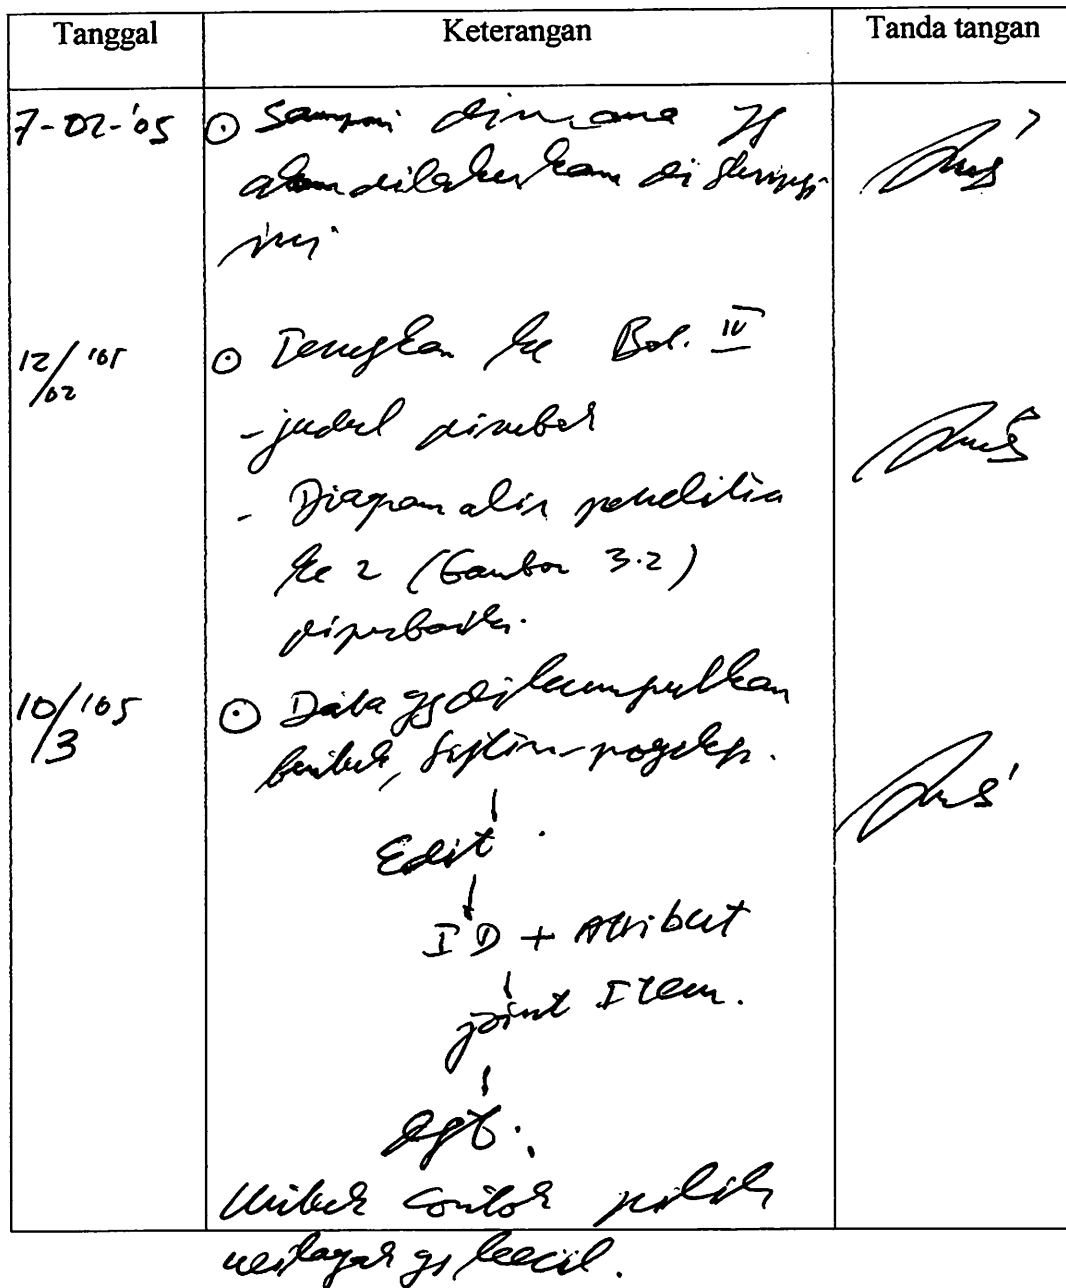 Tanggal Keterangan Tanda tangan
7-02-'05 Sampai dimana yg
akan dilakukan di skripsi
ini
12/02 '05 Teruskan ke Bab. IV
- judul dirubah
- Diagram alir penelitia
ke 2 (Gambar 3.2)
diperbaiki.
10/3 '05 Data yg dikumpulkan
Edit
ID + Attribut
joint Item.
dgt.
Untuk contoh pilih
wilayah yg kecil.